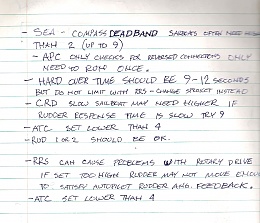 - SEA - COMPASS DEADBAND SAILBOATS OFTEN NEED HIGHER
THAN 2 (UP TO 9)
- APC ONLY CHECKS FOR REVERSED CONNECTIONS ONLY
NEED TO RUN ONCE.
- HARD OVER TIME SHOULD BE 9-12 SECONDS
BUT DO NOT LIMIT WITH RRS - CHANGE SPROCKET INSTEAD
- CRD SLOW SAILBOAT MAY NEED HIGHER IF
RUDDER RESPONSE TIME IS SLOW TRY 9
- ATC SET LOWER THAN 4
- RUD 1 OR 2 SHOULD BE OK.
- RRS CAN CAUSE PROBLEMS WITH ROTARY DRIVE
IF SET TOO HIGH RUDDER MAY NOT MOVE ENOUGH
TO SATISFY AUTOPILOT RUDDER ANG. FEEDBACK.
- ATC SET LOWER THAN 4